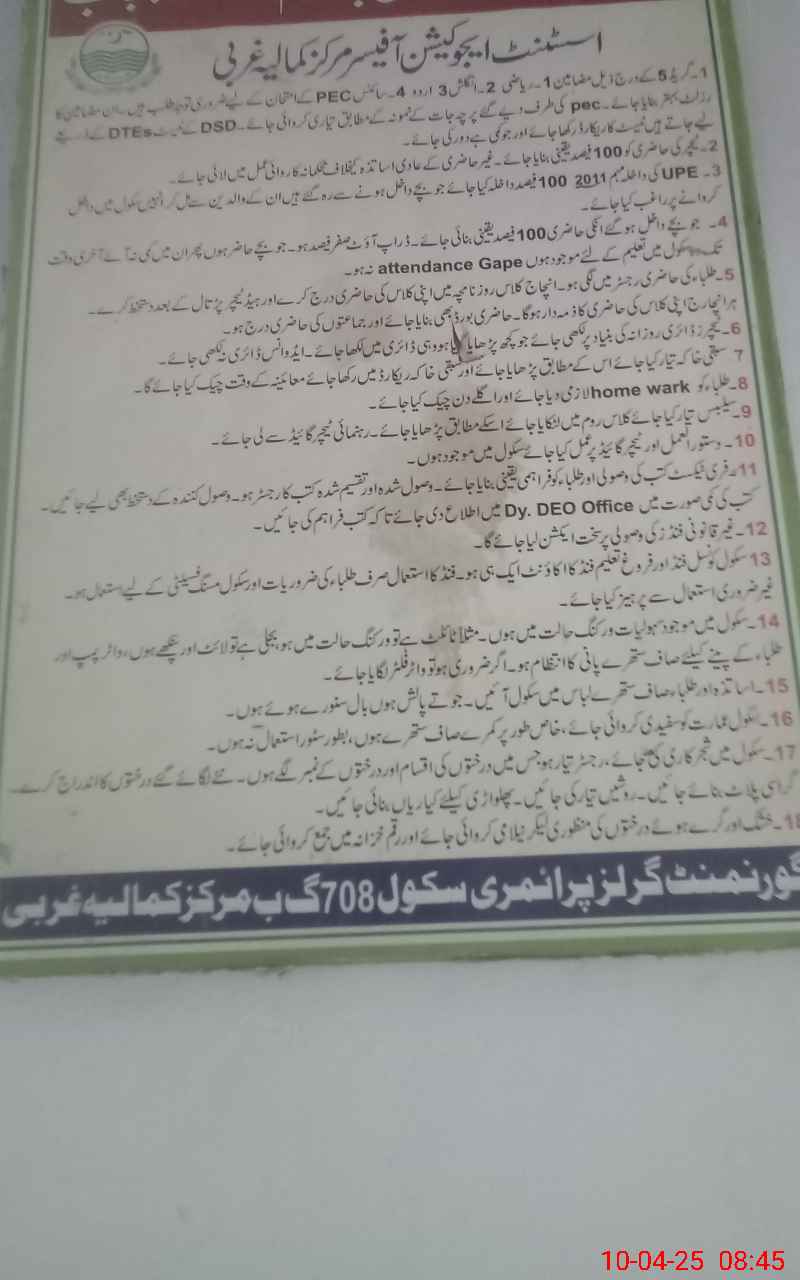 اسسٹنٹ ایجوکیشن آفیسر مرکز کمالیہ غربی
1۔گریڈ 5 کے درج ذیل مضامین 1۔ ریاضی 2۔انگلش 3 اردو 4۔سائنس PEC کے امتحان کے لیے ضروری توجہ طلب ہیں۔ان مضامین کا
رزلٹ بہتر بنایا جائے۔ pec کی طرف دیے گئے پرچہ جات کے نمونہ کے مطابق تیاری کروائی جائے۔DSD کے ٹیسٹ DTEs کے ذریعے
لیے جاتے ہیں ٹیسٹ کا ریکارڈ رکھا جائے اور جو کمی ہے دور کی جائے۔
2۔ٹیچر کی حاضری کو 100 فیصد یقینی بنایا جائے۔ غیر حاضری کے عادی اساتذہ کیخلاف محکمانہ کاروائی عمل میں لائی جائے۔
3۔ UPE کی داخلہ مہم 2011 100 فیصد داخلہ کیا جائے جو بچے داخل ہونے سے رہ گئے ہیں ان کے والدین سے مل کر انہیں سکول میں داخل
کروانے پر راغب کیا جائے۔
4۔ جو بچے داخل ہو گئے انکی حاضری 100 فیصد یقینی بنائی جائے۔ ڈراپ آؤٹ صفر فیصد ہو۔ جو بچے حاضر ہوں پھر ان میں کمی نہ آئے آخری وقت
تک سکول میں تعلیم کے لئے موجود ہوں attendance Gape نہ ہو۔
5۔طلباء کی حاضری رجسٹر میں لگی ہو۔ انچاج کلاس روزنامچہ میں اپنی کلاس کی حاضری درج کرے اور ہیڈ ٹیچر پڑتال کے بعد دستخط کرے۔
ہر انچارج اپنی کلاس کی حاضری کا ذمہ دار ہوگا۔ حاضری بورڈ بھی بنایا جائے اور جماعتوں کی حاضری درج ہو۔
6۔ٹیچرز ڈائری روزانہ کی بنیاد پر لکھی جائے جو کچھ پڑھایا گیا ہو وہی ڈائری میں لکھا جائے۔ ایڈوانس ڈائری نہ لکھی جائے۔
7 سبقی خاکہ تیار کیا جائے اس کے مطابق پڑھایا جائے اور سبقی خاکہ ریکارڈ میں رکھا جائے معائینہ کے وقت چیک کیا جائے گا۔
8۔طلباء کو home wark لازمی دیا جائے اور اگلے دن چیک کیا جائے۔
9۔سیلبس تیار کیا جائے کلاس روم میں لٹکایا جائے اسکے مطابق پڑھایا جائے۔ رہنمائی ٹیچر گائیڈ سے لی جائے۔
10۔ دستور العمل اور ٹیچر گائیڈ پر عمل کیا جائے سکول میں موجود ہوں۔
11۔فری ٹیکسٹ کتب کی وصولی اور طلباء کو فراہمی یقینی بنایا جائے۔ وصول شدہ اور تقسیم شدہ کتب کا رجسٹر ہو۔ وصول کنندہ کے دستخط بھی لیے جائیں۔
کتب کی کمی صورت میں Dy. DEO Office میں اطلاع دی جائے تاکہ کتب فراہم کی جائیں۔
12۔غیر قانونی فنڈز کی وصولی پر سخت ایکشن لیا جائے گا۔
13 سکول کونسل فنڈ اور فروغ تعلیم فنڈ کا اکاؤنٹ ایک ہی ہو۔ فنڈ کا استعمال صرف طلباء کی ضروریات اور سکول مسنگ فسیلٹی کے لیے استعمال ہو۔
غیر ضروری استعمال سے پرہیز کیا جائے۔
14۔سکول میں موجود سہولیات ورکنگ حالت میں ہوں۔ مثلاً ٹائلٹ ہے تو ورکنگ حالت میں ہو، بجلی ہے تو لائٹ اور پنکھے ہوں، واٹر پمپ اور
طلباء کے پینے کیلئے صاف ستھرے پانی کا انتظام ہو۔ اگر ضروری ہو تو واٹر فلٹر لگایا جائے۔
15۔اساتذہ اور طلباء صاف ستھرے لباس میں سکول آئیں۔ جوتے پالش ہوں بال سنورے ہوئے ہوں۔
16۔سکول عمارت کو سفیدی کروائی جائے، خاص طور پر کمرے صاف ستھرے ہوں، بطور سٹور استعمال نہ ہوں۔
17۔سکول میں شجرکاری کی جائے، رجسٹر تیار ہو جس میں درختوں کی اقسام اور درختوں کے نمبر لگے ہوں۔ نئے لگائے گئے درختوں کا اندراج کرے۔
گراسی پلاٹ بنائے جائیں۔ روشیں تیار کی جائیں۔ پھلواڑی کیلئے کیاریاں بنائی جائیں۔
18۔خشک اور گرے ہوئے درختوں کی منظوری لیکر نیلامی کروائی جائے اور رقم خزانہ میں جمع کروائی جائے۔
گورنمنٹ گرلز پرائمری سکول 708 گ ب مرکز کمالیہ غربی
10-04-25 08:45